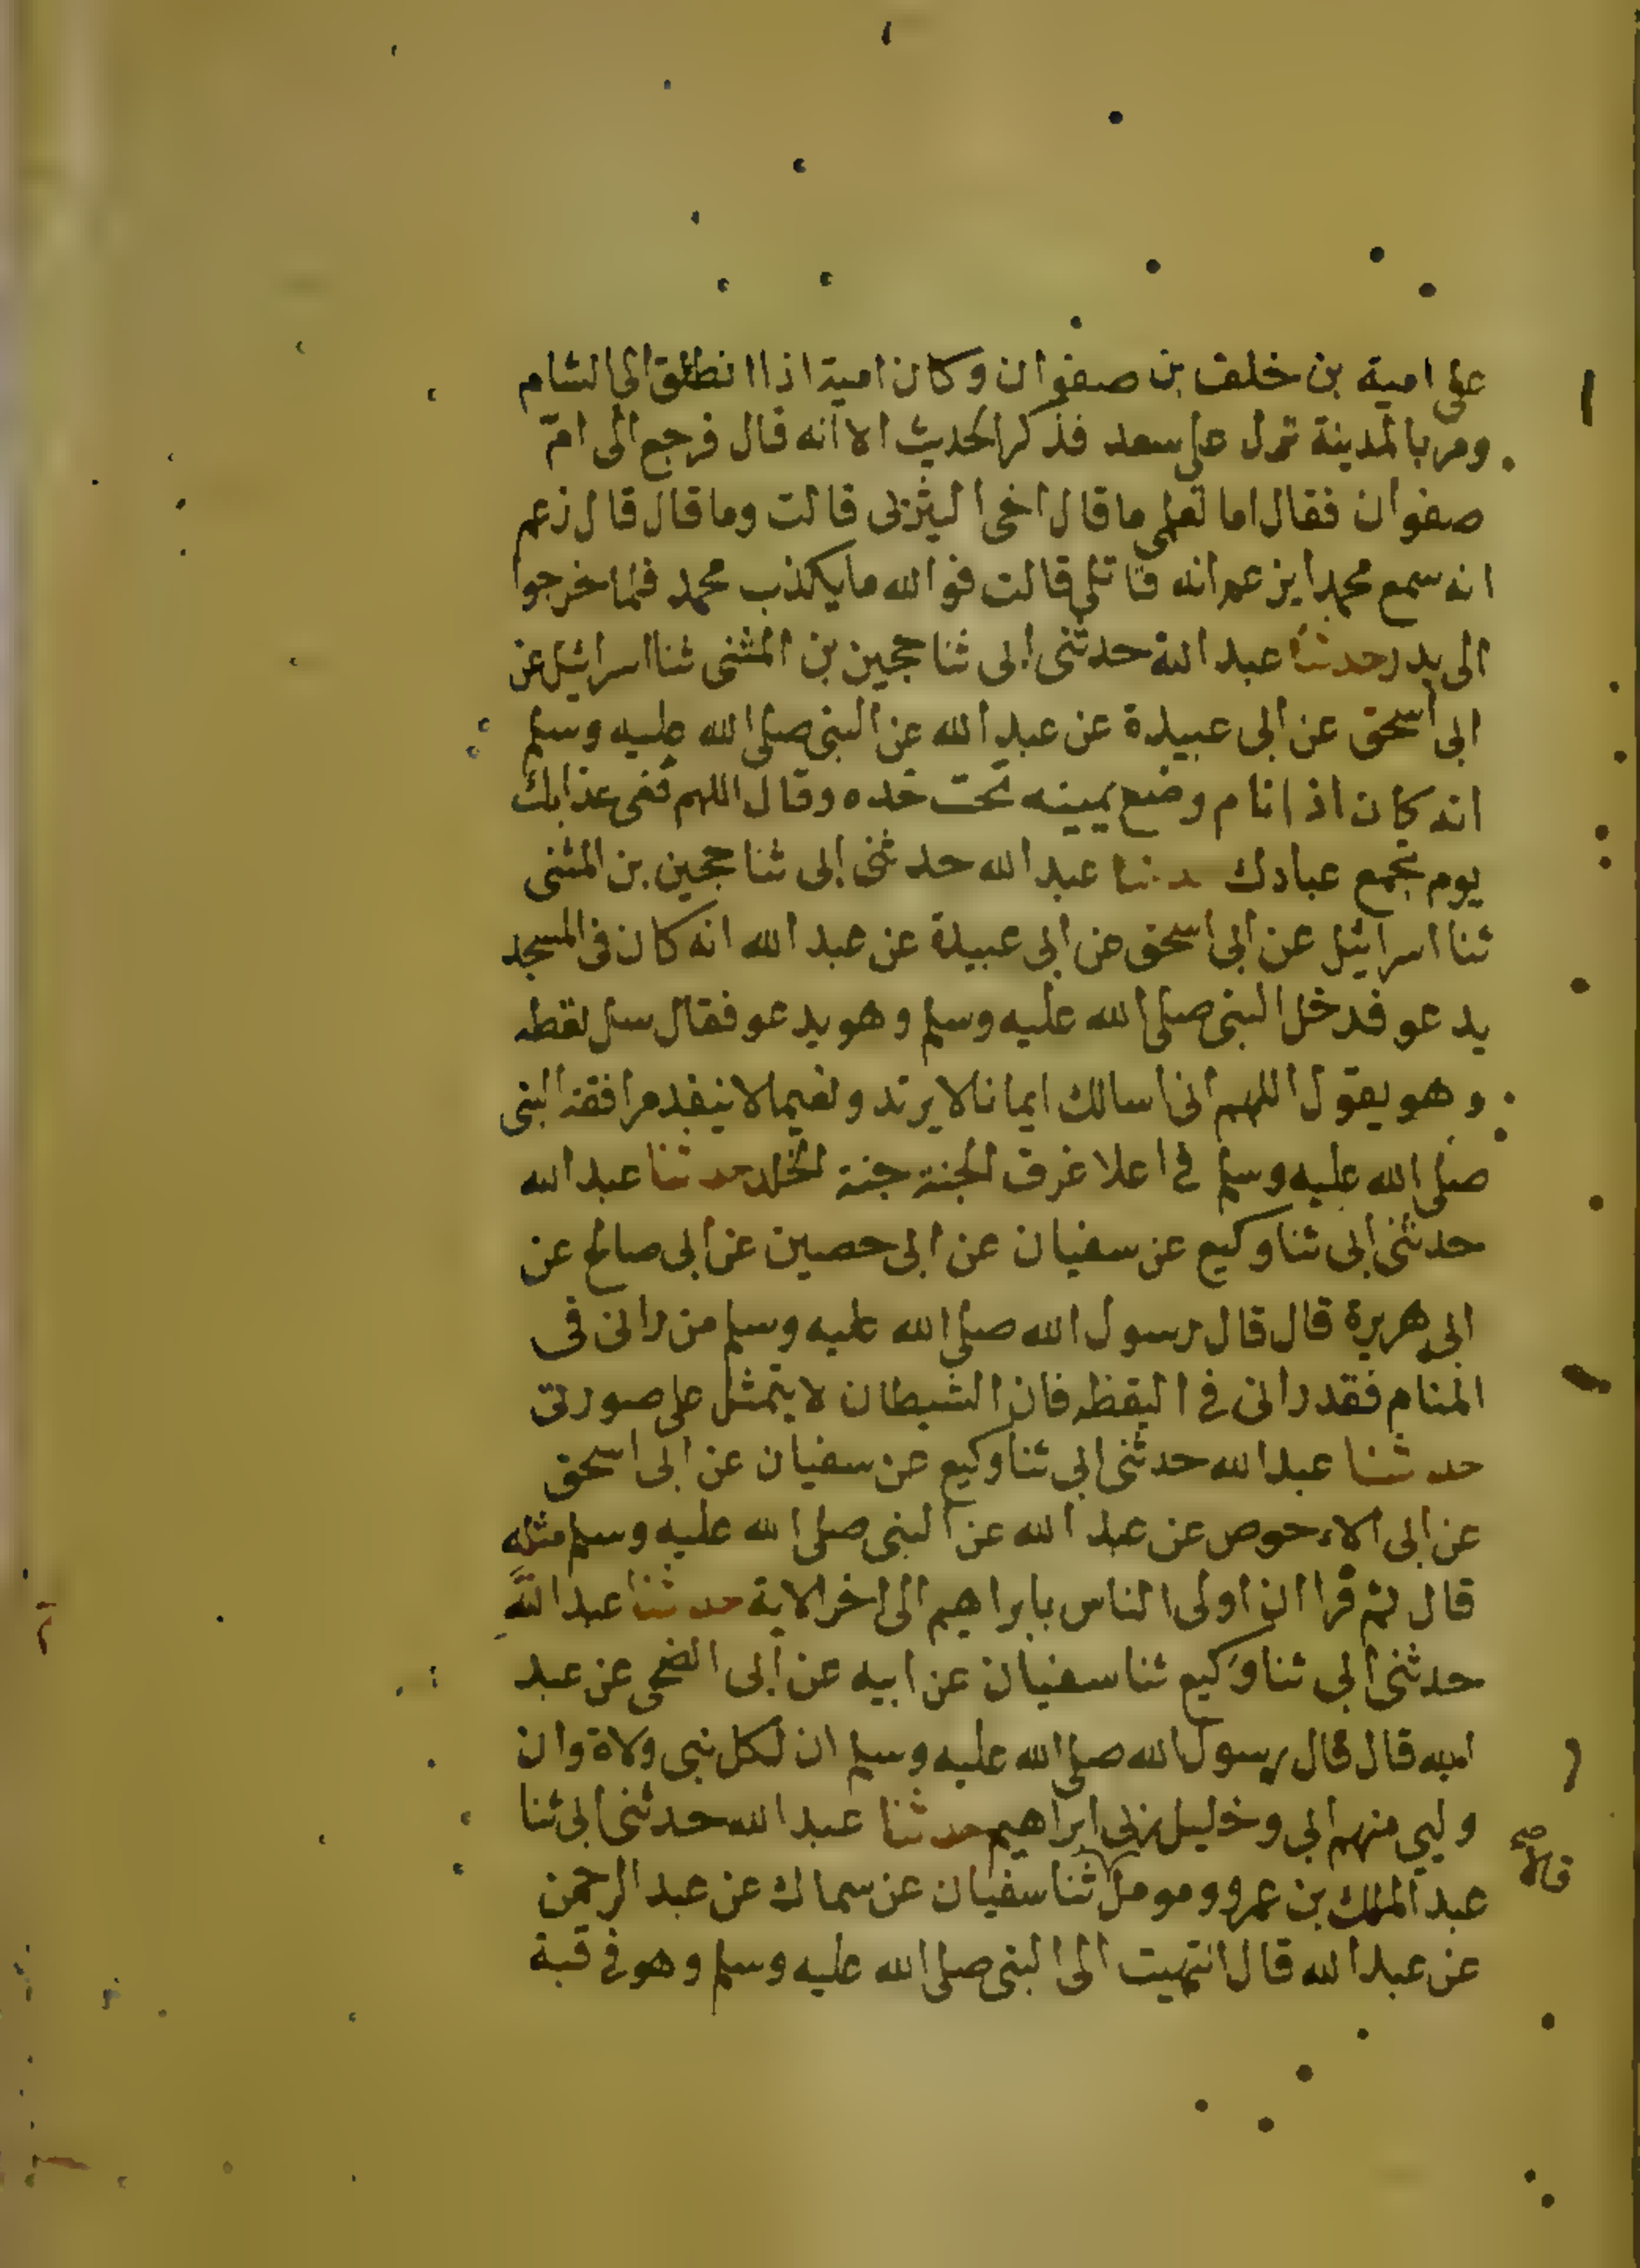 على امية بن خلف بن صفوان وكان امية اذا انطلق الى الشام
ومر بالمدينة نزل على سعد فذكر الحديث الا انه قال فرجع الى ام
صفوان فقال اما تعلمي ما قال اخى اليثربى قالت وما قال قال زعم
انه سمع محمدا يزعم انه قاتلى قالت فوالله ما يكذب محمد فلما خرجوا
الى بدر حدثنا عبد الله حدثنى ابى ثنا حجين بن المثنى ثنا اسرائيل عن
ابى اسحق عن ابى عبيدة عن عبد الله عن النبى صلى الله عليه وسلم
انه كان اذا نام وضع يمينه تحت خده وقال اللهم قنى عذابك
يوم تجمع عبادك حدثنا عبد الله حدثنى ابى ثنا حجين بن المثنى
ثنا اسرائيل عن ابى اسحق عن ابى عبيدة عن عبد الله انه كان فى المسجد
يدعو فدخل النبى صلى الله عليه وسلم وهو يدعو فقال سل تعطه
وهو يقول اللهم انى اسالك ايمانا لا يرتد ونعيما لا ينفد مرافقة النبى
صلى الله عليه وسلم فى اعلا غرف الجنة جنة الخلد حدثنا عبد الله
حدثنى ابى ثنا وكيع عن سفيان عن ابى حصين عن ابى صالح عن
ابى هريرة قال قال رسول الله صلى الله عليه وسلم من رانى فى
المنام فقد رانى فى اليقظه فان الشيطان لا يتمثل على صورتى
حدثنا عبد الله حدثنى ابى ثنا وكيع عن سفيان عن ابى اسحق
عن ابى الاحوص عن عبد الله عن النبى صلى الله عليه وسلم مثله
قال ثم قرا ان اولى الناس بابراهيم الى اخر الاية حدثنا عبد الله
حدثنى ابى ثنا وكيع ثنا سفيان عن ابيه عن ابى الضحى عن عبد
الله قال قال رسول الله صلى الله عليه وسلم ان لكل نبى ولاة وان
وليى منهم ابى وخليل ربى ابراهيم حدثنا عبد الله حدثنى ابى ثنا
عبد الملك بن عمرو ومومل ثنا سفيان عن سماك عن عبد الرحمن
قالا صح
عن عبد الله قال انتهيت الى النبى صلى الله عليه وسلم وهو فى قبة